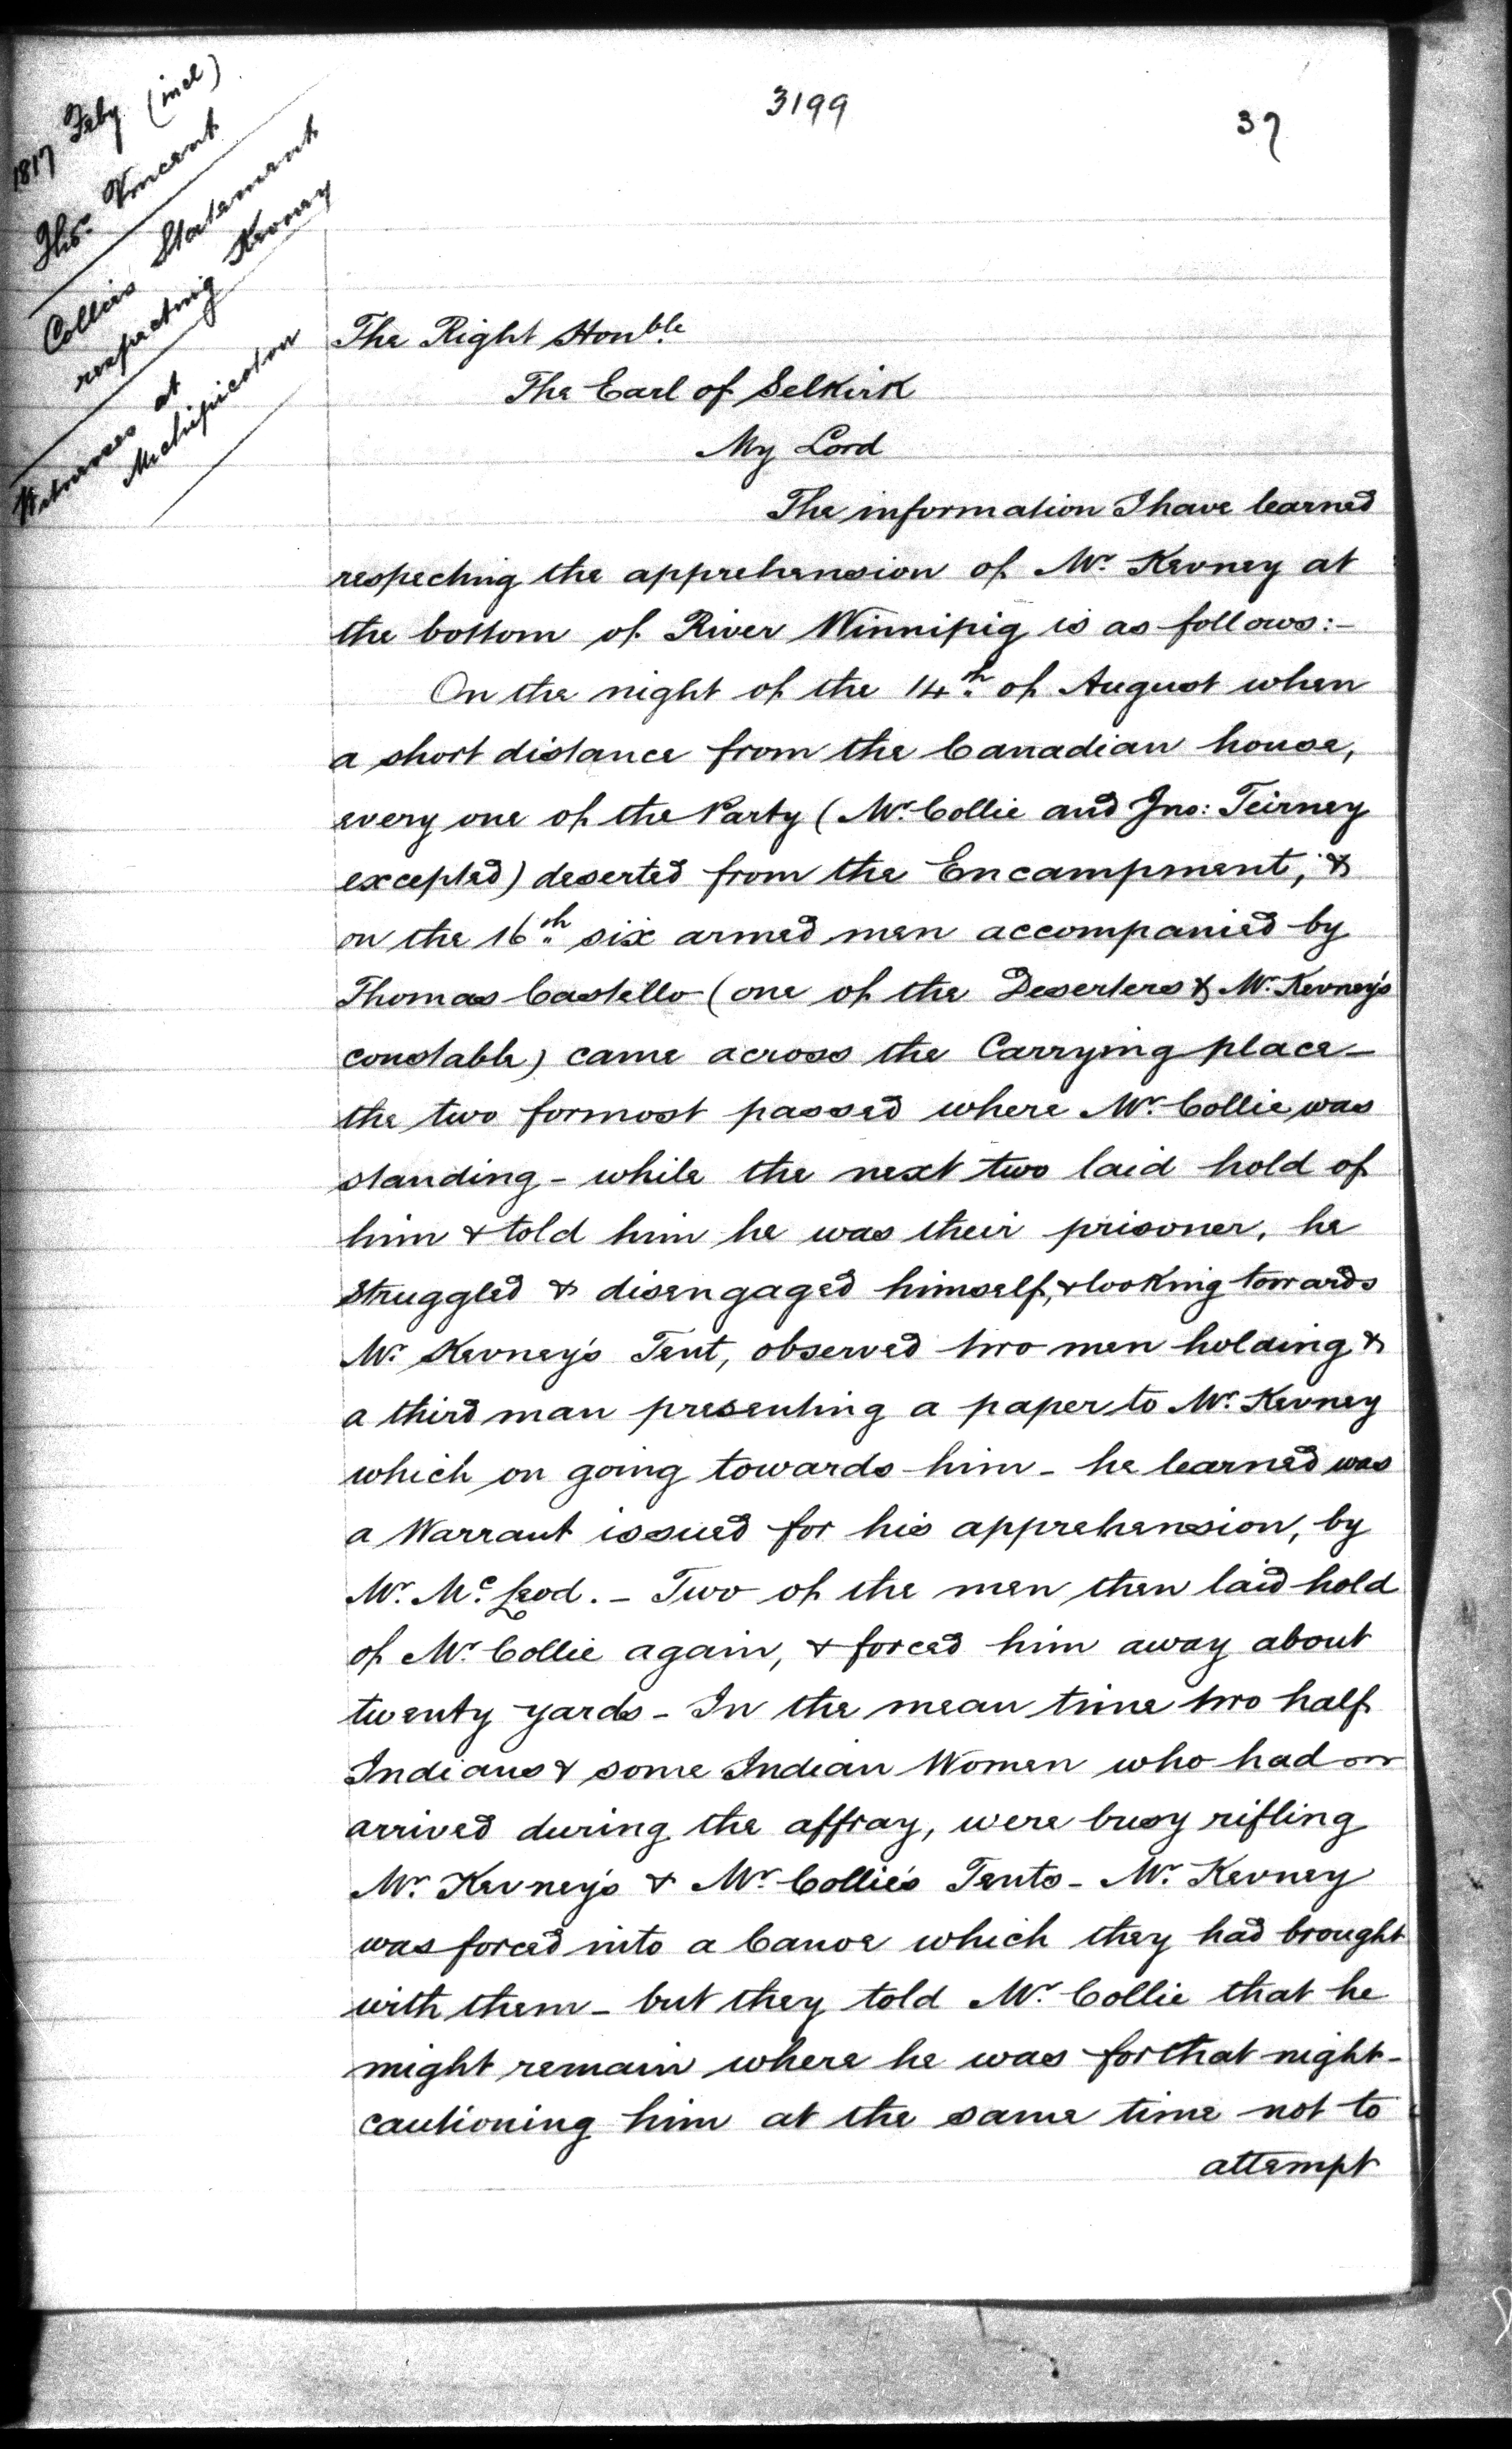 3199
37
1817 Feby (incl)
Thos. Vincent
Collies Statement
respecting Kevney
Witnesses at
Michipicoton
The Right Honble.
The Earl of Selkirk
My Lord
The information I have learned
respecting the apprehension of Mr. Kevney at
the bottom of River Winnipig is as follows:-
On the night of the 14th. of August when
a short distance from the Canadian house,
every one of the Party (Mr. Collie and Jno: Teirney
excepted) deserted from the Encampment, &
on the 16th. six armed men accompanied by
Thomas Castello (one of the Deserters & Mr. Kevney's
constable) came across the Carrying place -
the two formost passed where Mr. Collie was
standing - while the next two laid hold of
him & told him he was their prisoner, he
struggled & disengaged himself, & looking towards
Mr. Kevney's Tent, observed two men holding &
a third man presenting a paper to Mr. Kevney
which on going towards him - he learned was
a Warrant issued for his apprehension, by
Mr. Mc. Leod. - Two of the men then laid hold
of Mr. Collie again, & forced him away about
twenty yards - In the mean time two half
Indians & some Indian Women who had
arrived during the affray, were busy rifling
Mr. Kevney's & Mr. Collie's Tents - Mr. Kevney
was forced into a Canoe which they had brought
with them - but they told Mr. Collie that he
might remain where he was for that night -
cautioning him at the same time not to
attempt